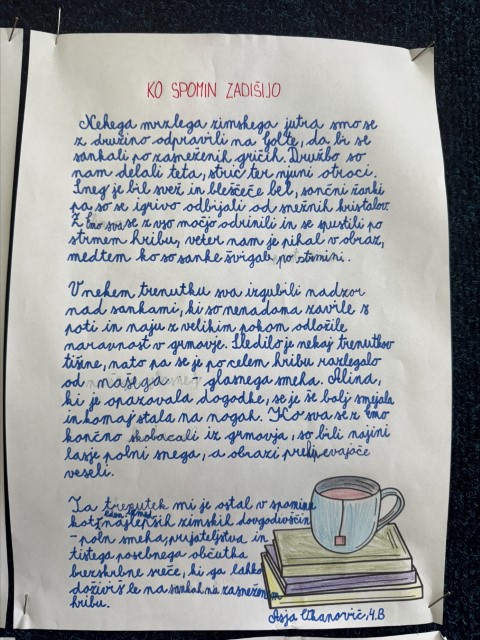 KO SPOMIN ZADIŠIJO
Nekega mrzlega zimskega jutra smo se
z družino odpravili na Golte, da bi se
sankali po zasneženih gričih. Družbo so
nam delali teta, stric ter njuni otroci.
Sneg je bil svež in bleščeče bel, sončni žarki
pa so se igrivo odbijali od snežnih kristalov.
Z Emo sva se z vso močjo odrinili in se spustili po
strmem hribu, veter nam je pihal v obraz,
medtem ko so sanke švigale po strmini.
V nekem trenutku sva izgubili nadzor
nad sankami, ki so nenadoma zavile s
poti in naju z velikim pokom odložile
naravnost v grmovje. Sledilo je nekaj trenutkov
tišine, nato pa se je po celem hribu razlegalo
od našega glasnega smeha. Alina,
ki je opazovala dogodke, se je še bolj smejala
in komaj stala na nogah. Ko sva se z Emo
končno skobacali iz grmovja, so bili najini
lasje polni snega, a obrazi prekipevajoče
veseli.
Ta trenutek mi je ostal v spominu
kot eden izmed najlepših zimskih dogodivščin
– poln smeha, prijateljstva in
tistega posebnega občutka
brezskrbne sreče, ki ga lahko
doživiš le na sankah na zasneženem
hribu.
Asja Uhanovič, 4.B